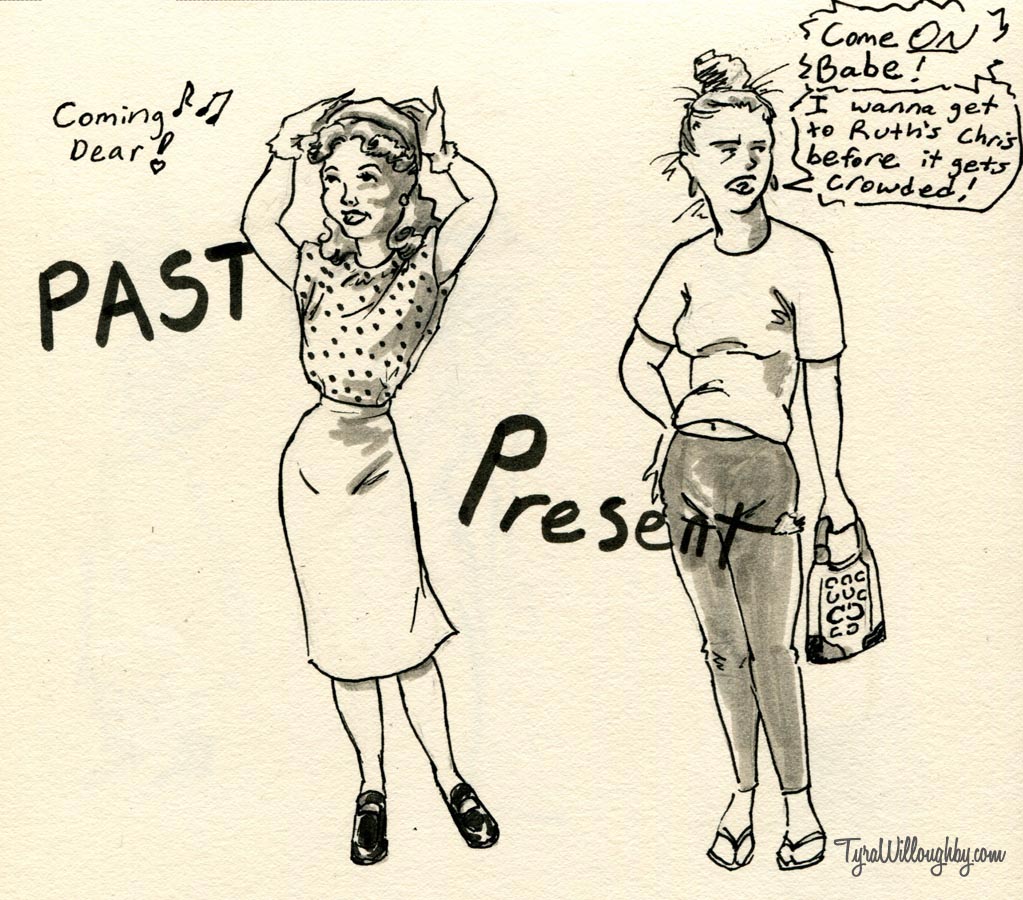 Coming
Dear!
PAST
Come ON
Babe!
I wanna get
to Ruth's Chris
before it gets
crowded!
Present
TyraWilloughby.com